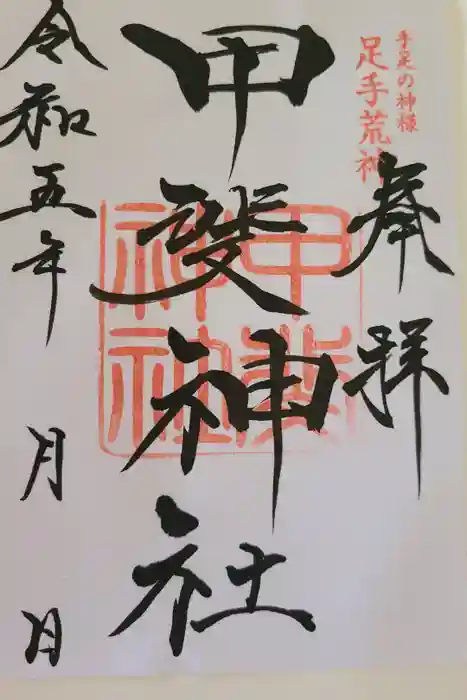 手足の神様
足手荒神
奉拝
甲斐神社
甲斐神社
令和五年 月 日